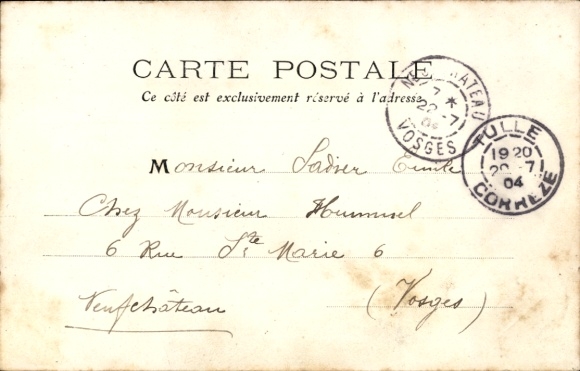 CARTE POSTALE
Ce côté est exclusivement réservé à l'adresse
NEUFCHATEAU
7 *
22 -7
04
VOSGES
TULLE
1920
20 -7
04
CORREZE
Monsieur Sadier Emile
Chez Monsieur Hummel
6 Rue Ste Marie 6
Neufchâteau (Vosges)